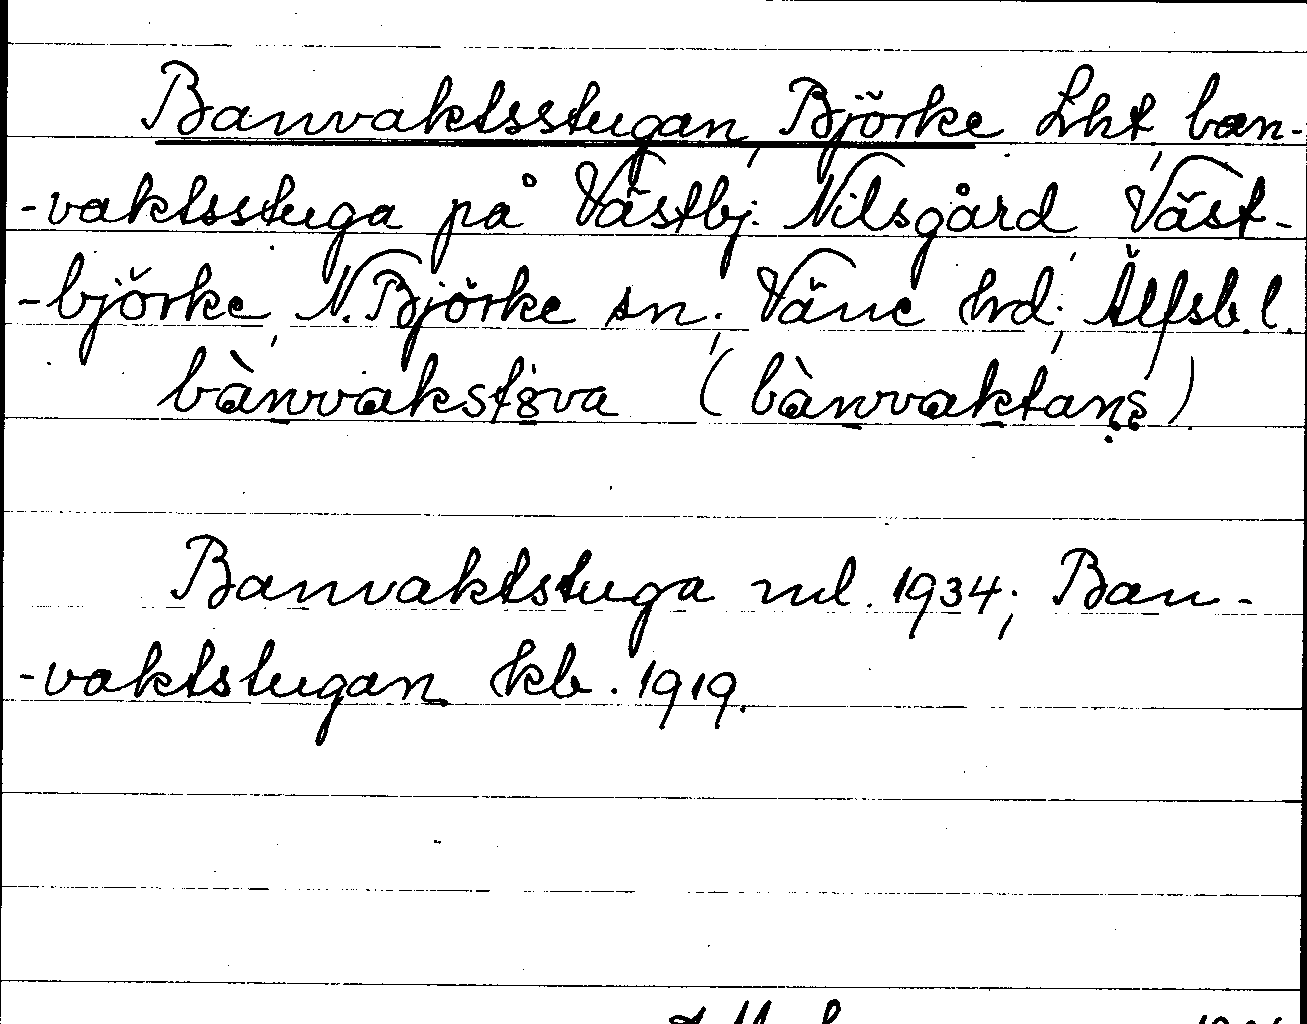 Banvaktsstugan, Björke Lht, ban-
-vaktsstuga på Västbj. Nilsgård, Väst-
-björke, N. Björke sn; Väne hd; Älfsb. l.
bànvakstöva (bànvaktans)
Banvaktstuga ml. 1934; Ban-
-vaktstugan kb. 1919.